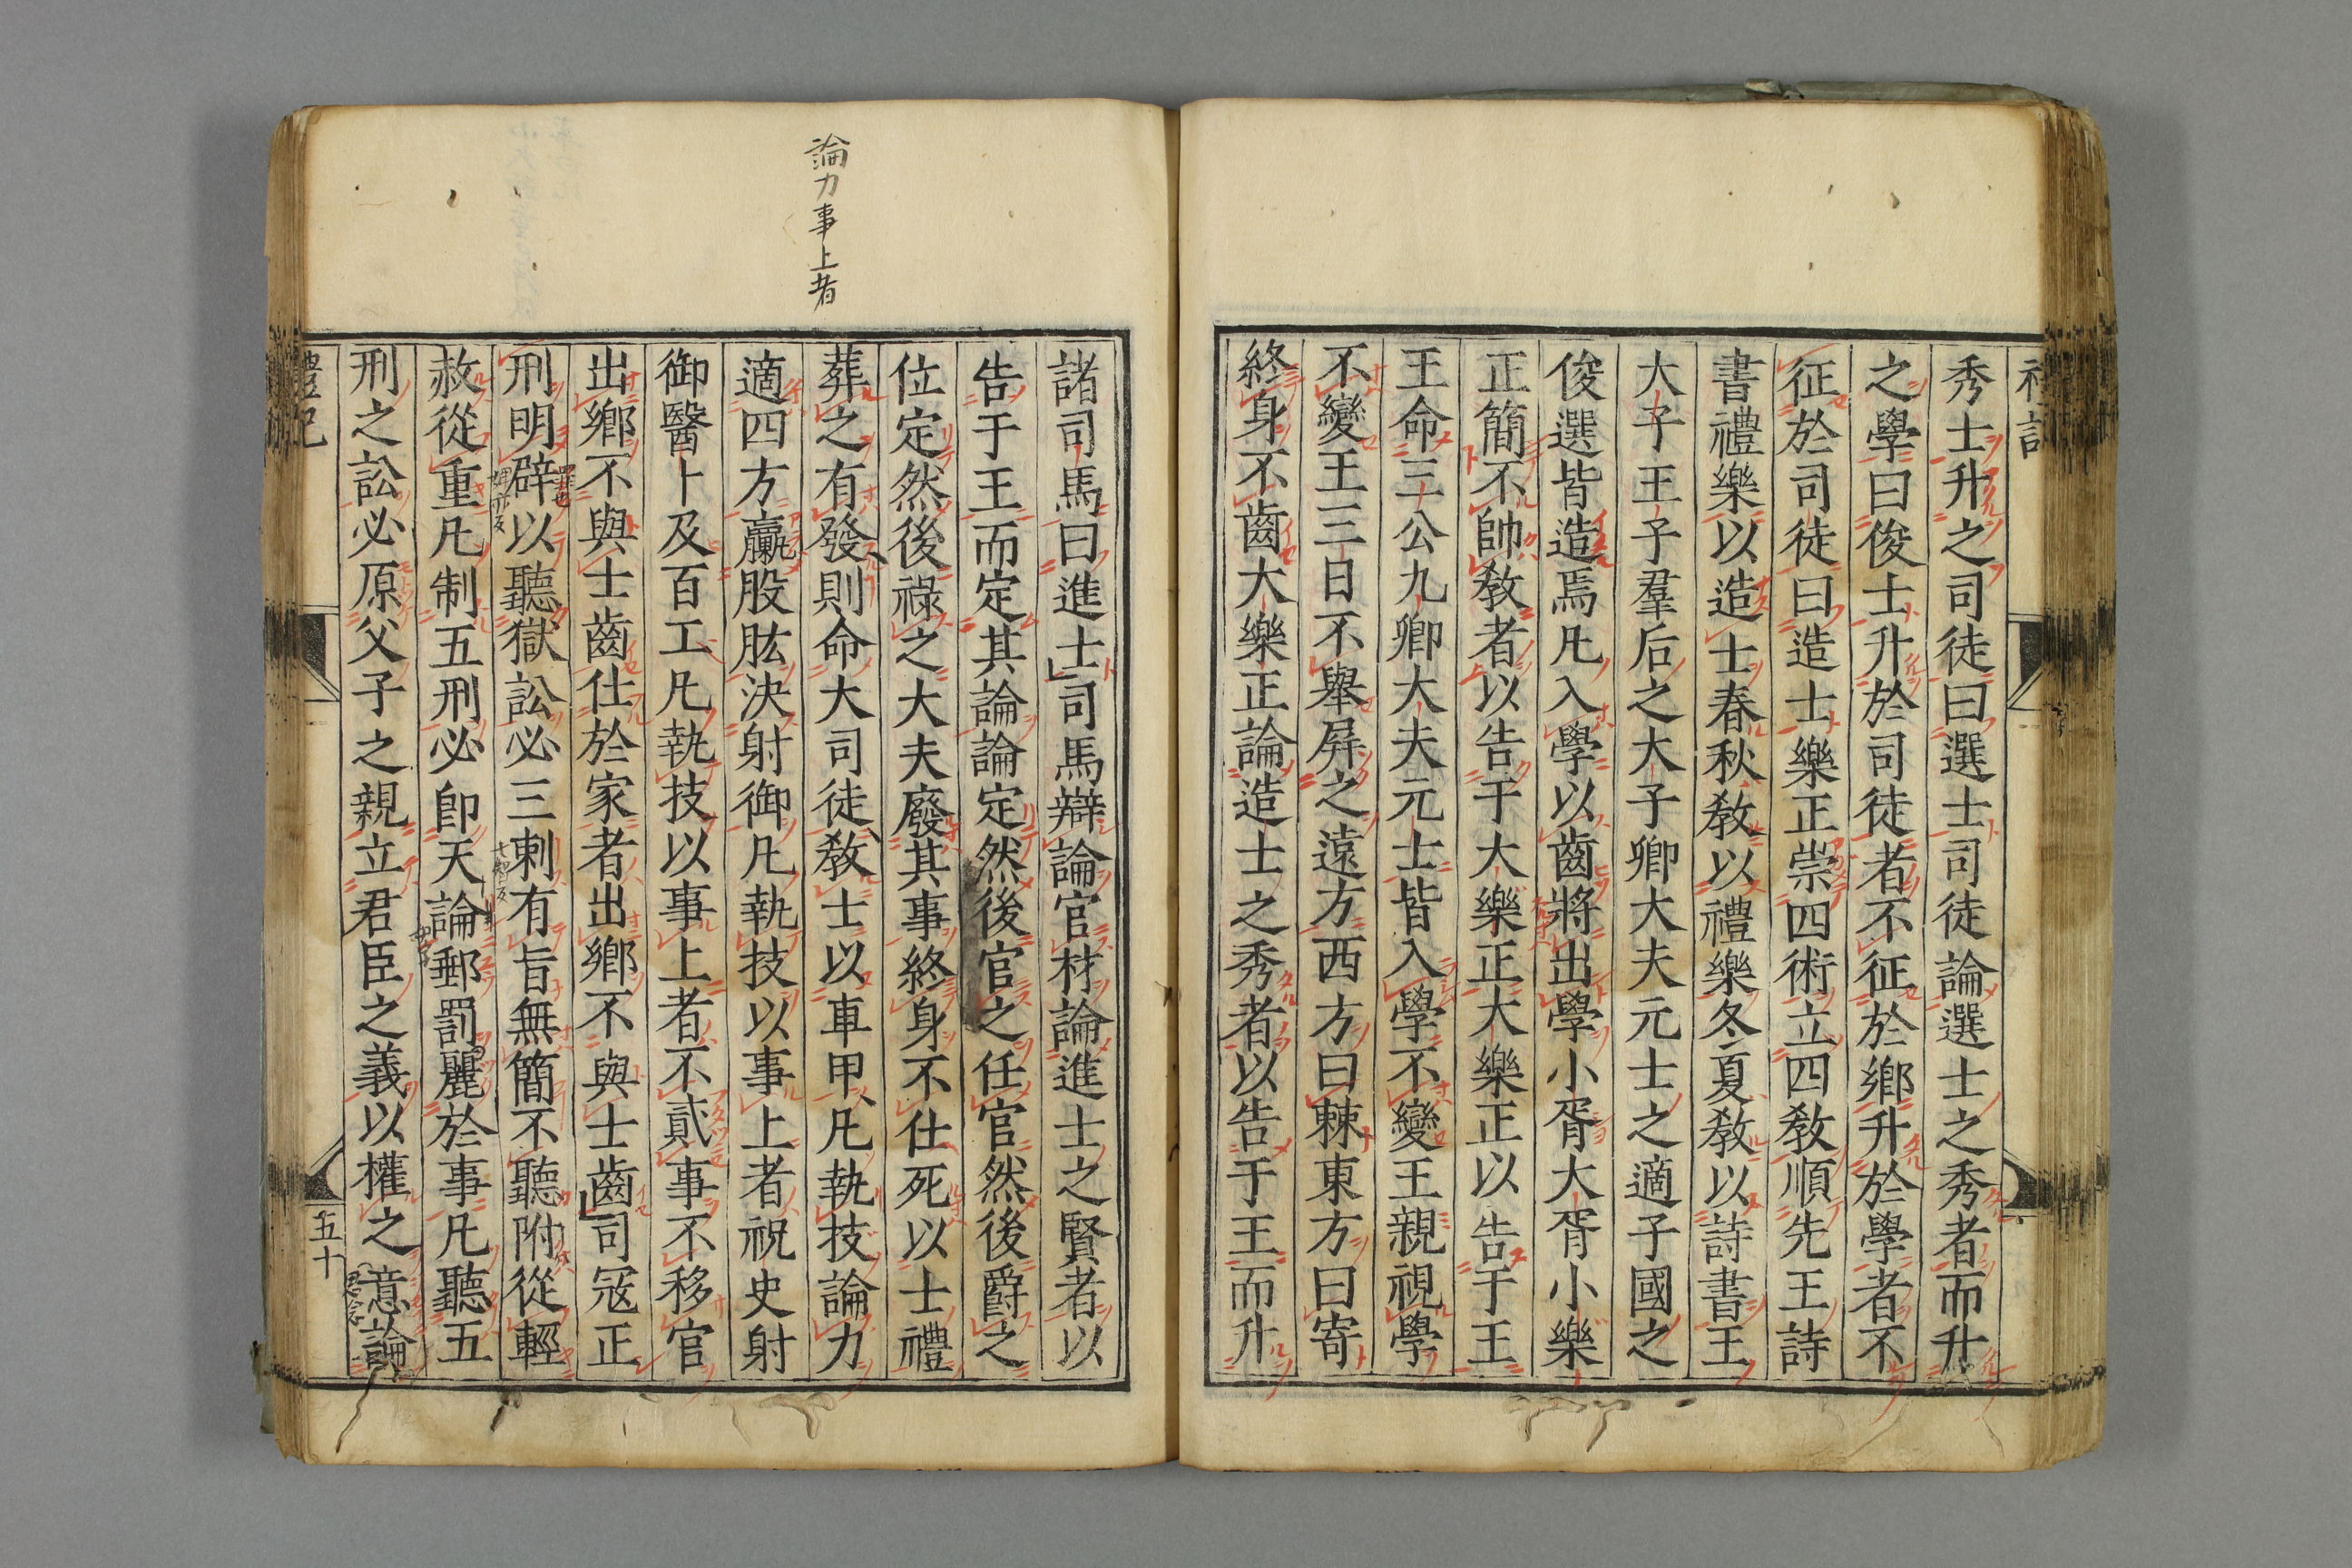 禮記
秀士升之司徒曰選士司徒論選士之秀者而升
之學曰俊士升於司徒者不征於鄉升於學者不
征於司徒曰造士樂正崇四術立四教順先王詩
書禮樂以造士春秋教以禮樂冬夏教以詩書王
大子王子羣后之大子卿大夫元士之適子國之
俊選皆造焉凡入學以齒將出學小胥大胥小樂
正簡不帥教者以告于大樂正大樂正以告于王
王命三公九卿大夫元士皆入學不變王親視學
不變王三日不舉屏之遠方西方曰棘東方曰寄
終身不齒大樂正論造士之秀者以告于王而升
論力事上者
諸司馬曰進士司馬辯論官材論進士之賢者以
告于王而定其論論定然後官之任官然後爵之
位定然後祿之大夫廢其事終身不仕死以士禮
葬之有發則命大司徒教士以車甲凡執技論力
適四方臝股肱決射御凡執技以事上者祝史射
御醫卜及百工凡執技以事上者不貳事不移官
出鄉不與士齒仕於家者出鄉不與士齒司寇正
刑明辟以聽獄訟必三刺有旨無簡不聽附從輕
赦從重凡制五刑必卽天論郵罰麗於事凡聽五
刑之訟必原父子之親立君臣之義以權之意論
禮記
五十